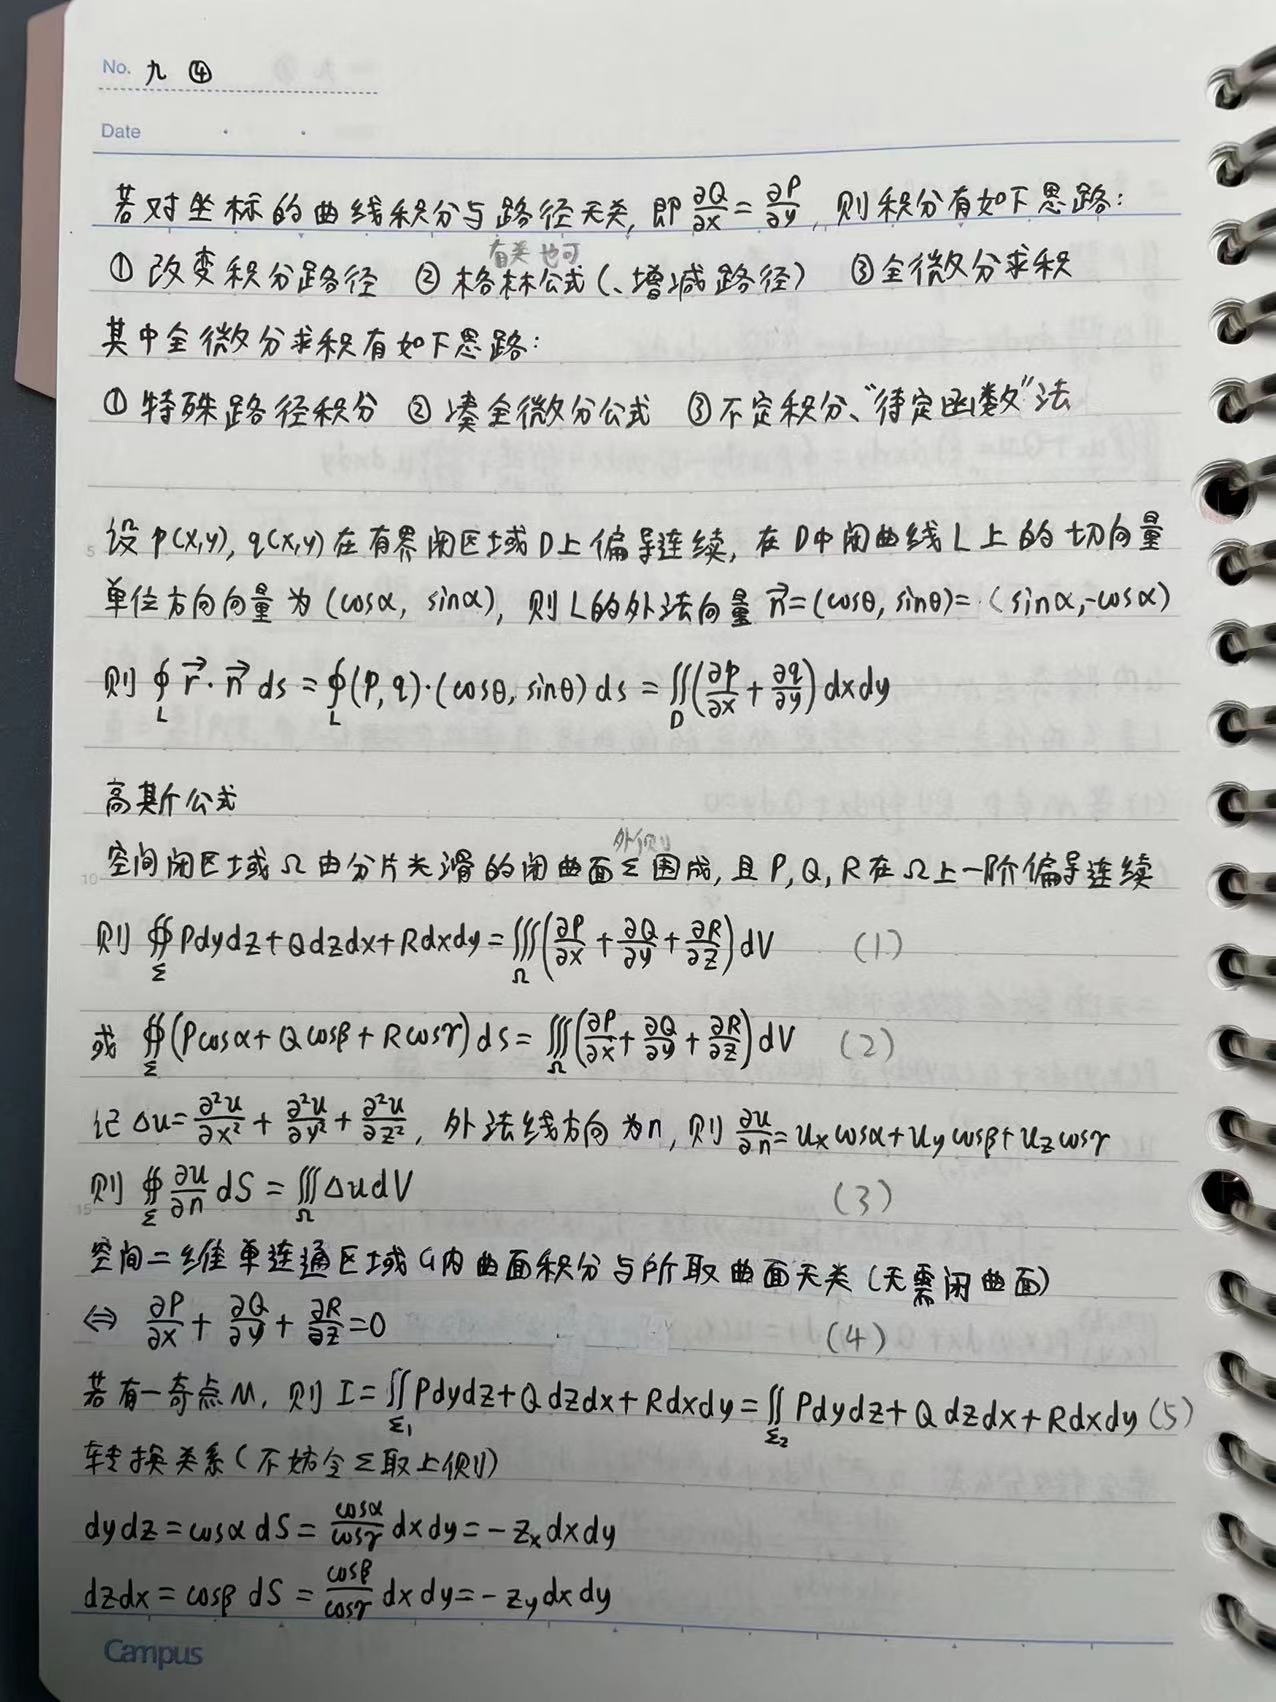 No. 九 ④
Date
若对坐标的曲线积分与路径无关, 即 ∂Q/∂x = ∂P/∂y, 则积分有如下思路:
有关也可
① 改变积分路径 ② 格林公式(、增减路径) ③ 全微分求积
其中全微分求积有如下思路:
① 特殊路径积分 ② 凑全微分公式 ③ 不定积分、“待定函数”法
5 设 p(x,y), q(x,y) 在有界闭区域D上偏导连续, 在D中闭曲线L上的切向量
单位方向向量为 (cosα, sinα), 则L的外法向量 n⃗=(cosθ, sinθ)=(sinα,-cosα)
则 ∮_L r⃗·n⃗ ds = ∮_L (p,q)·(cosθ, sinθ) ds = ∬_D (∂p/∂x + ∂q/∂y) dxdy
高斯公式
外侧
10 空间闭区域Ω由分片光滑的闭曲面Σ围成, 且P,Q,R在Ω上一阶偏导连续
则 ∯_Σ Pdydz+Qdzdx+Rdxdy = ∭_Ω (∂P/∂x + ∂Q/∂y + ∂R/∂z) dV (1)
或 ∯_Σ (Pcosα+Qcosβ+Rcosγ) dS = ∭_Ω (∂P/∂x + ∂Q/∂y + ∂R/∂z) dV (2)
记 Δu = ∂²u/∂x² + ∂²u/∂y² + ∂²u/∂z², 外法线方向为n, 则 ∂u/∂n = u_x cosα + u_y cosβ + u_z cosγ
15 则 ∯_Σ ∂u/∂n dS = ∭_Ω Δu dV (3)
空间二维单连通区域G内曲面积分与所取曲面无关(无需闭曲面)
⇔ ∂P/∂x + ∂Q/∂y + ∂R/∂z = 0 (4)
若有一奇点M, 则 I = ∬_Σ₁ Pdydz+Qdzdx+Rdxdy = ∬_Σ₂ Pdydz+Qdzdx+Rdxdy (5)
转换关系(不妨令Σ取上侧)
dydz = cosα dS = cosα/cosγ dxdy = -z_x dxdy
dzdx = cosβ dS = cosβ/cosγ dxdy = -z_y dxdy
Campus